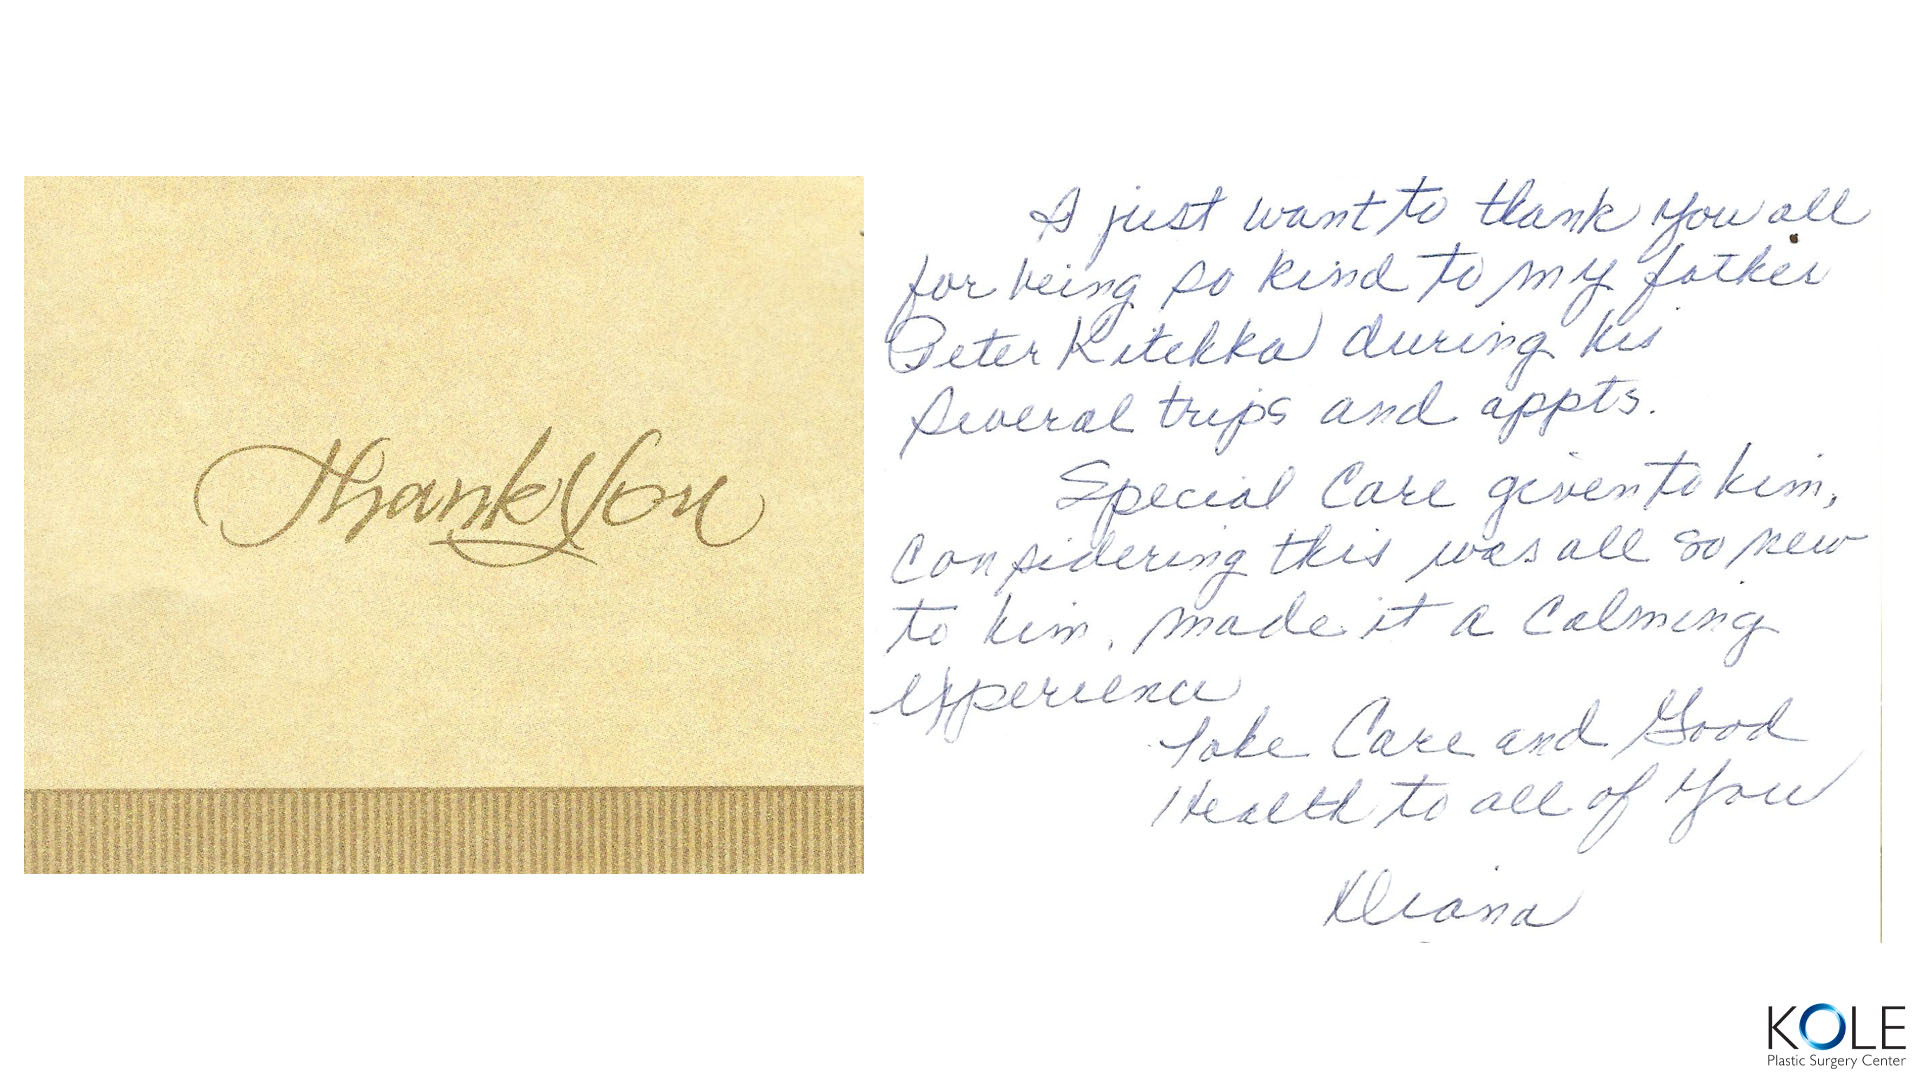 Thank You
I just want to thank you all
for being so kind to my father
Peter during his
several trips and appts.
Special Care given to him,
Considering this was all so new
to him, made it a Calming
experience
Take Care and Good
Health to all of you
Diana
KOLE
Plastic Surgery Center